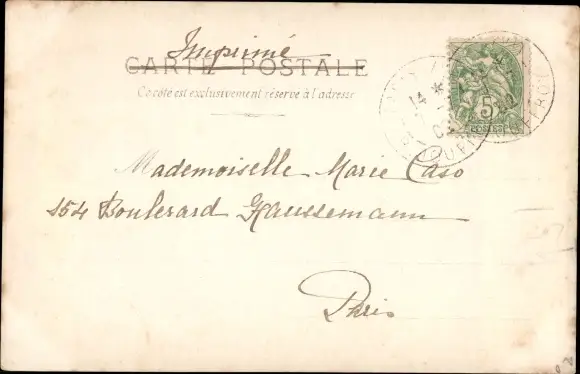 Imprimé
CARTE POSTALE
Ce côté est exclusivement réservé à l'adresse
14
5
POSTES
Mademoiselle Marie Caso
154 Boulevard Haussemann
Paris